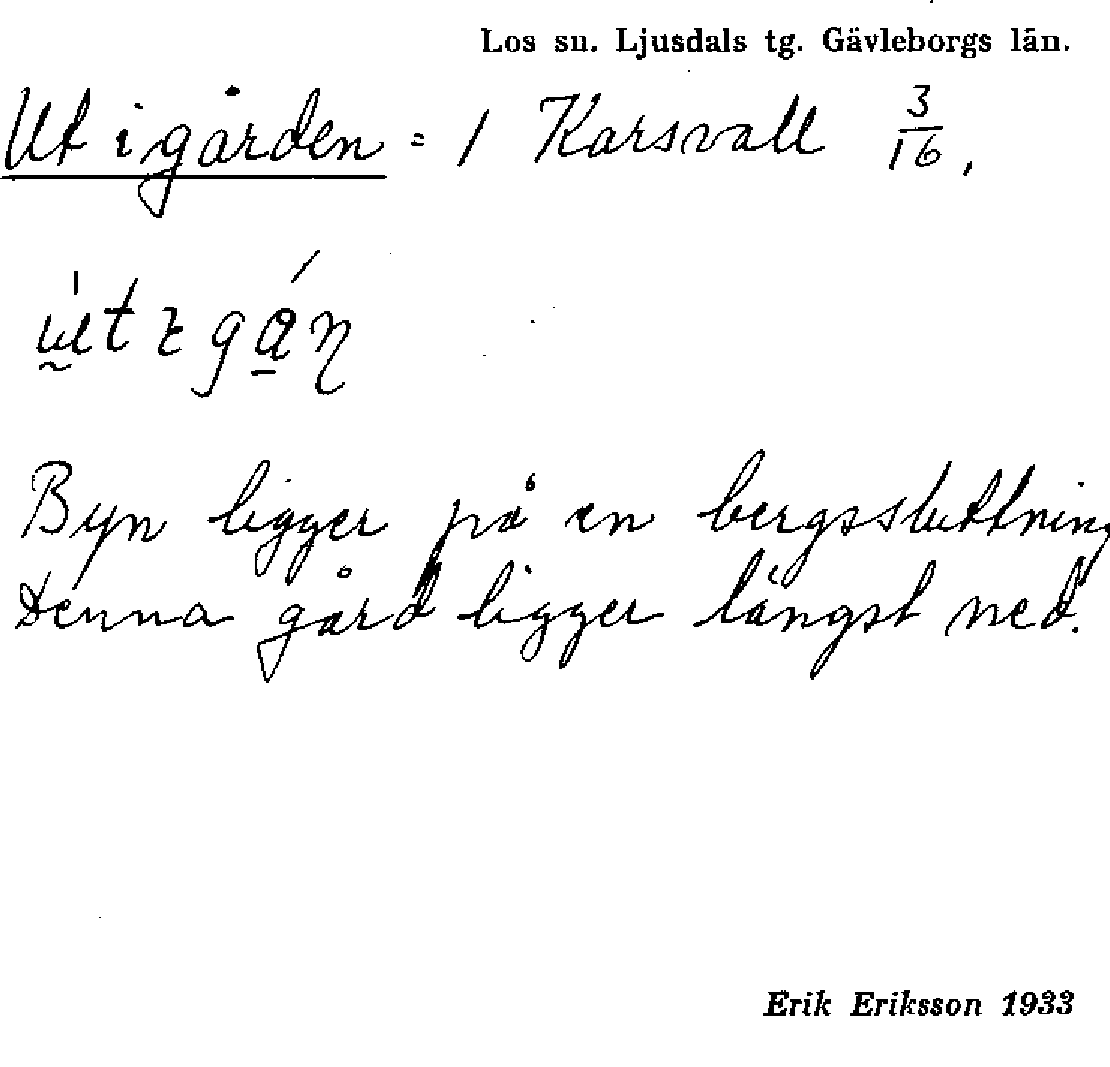 Los sn. Ljusdals tg. Gävleborgs län.
Ut i gården = 1 Karsvall 3/16,
Byn ligger på en bergssluttning
Denna gård ligger längst ned.
Erik Eriksson 1933